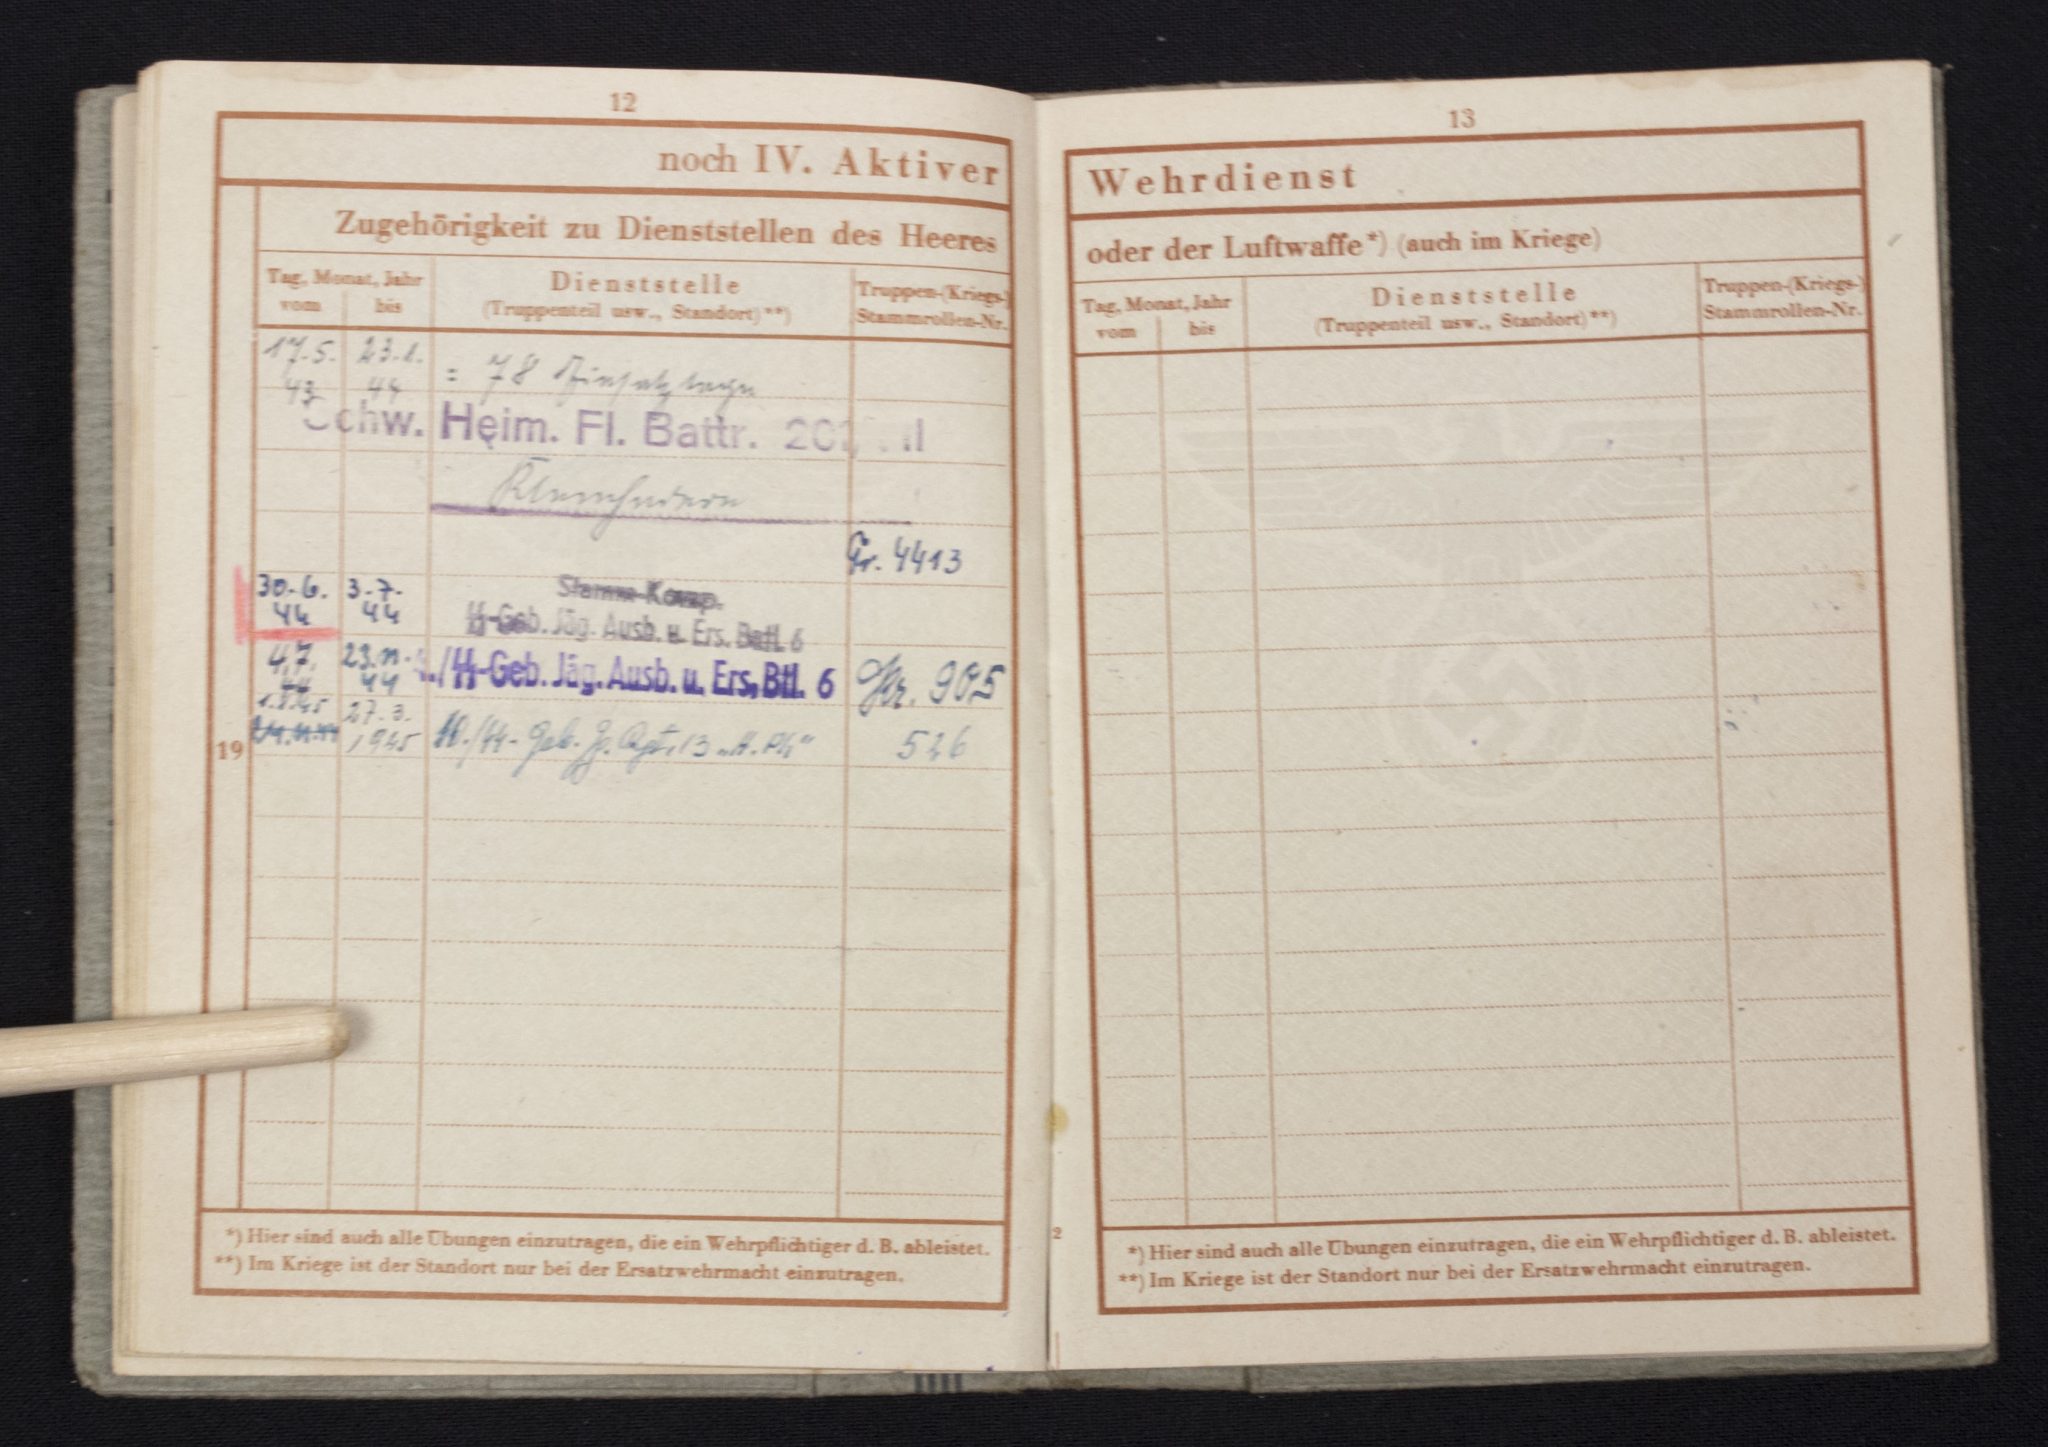 12
noch IV. Aktiver
Zugehörigkeit zu Dienststellen des Heeres
Tag, Monat, Jahr
vom bis
Dienststelle
(Truppenteil usw., Standort)**)
Truppen-(Kriegs-)
Stammrollen-Nr.
17.5. 43 23.1. 44 = 78 Einsatztage
Schw. Heim. Fl. Battr.
Gr. 4413
30.6. 44 3.7. 44 Stamm-Komp.
ᛋᛋ-Geb. Jäg. Ausb. u. Ers. Batl. 6
4.7. 44 23.11. 44 ./ᛋᛋ-Geb. Jäg. Ausb. u. Ers. Btl. 6 Nr. 905
19 24.11.44 27.3. 1945 10./ᛋᛋ-Geb. Jg. Rgt. 13 526
*) Hier sind auch alle Übungen einzutragen, die ein Wehrpflichtiger d. B. ableistet.
**) Im Kriege ist der Standort nur bei der Ersatzwehrmacht einzutragen.
13
Wehrdienst
oder der Luftwaffe*) (auch im Kriege)
Tag, Monat, Jahr
vom bis
Dienststelle
(Truppenteil usw., Standort)**)
Truppen-(Kriegs-)
Stammrollen-Nr.
2
*) Hier sind auch alle Übungen einzutragen, die ein Wehrpflichtiger d. B. ableistet.
**) Im Kriege ist der Standort nur bei der Ersatzwehrmacht einzutragen.